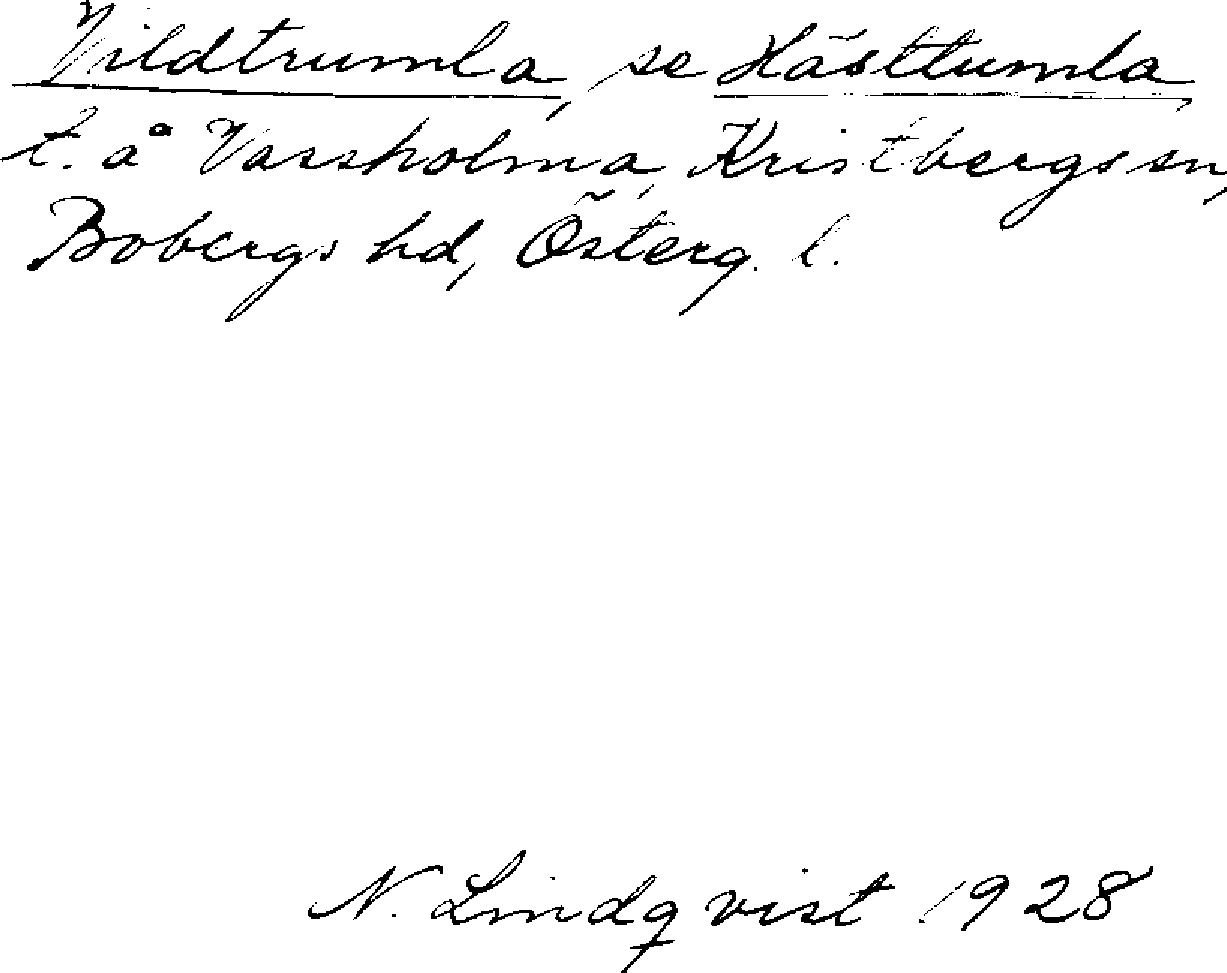 Vildtrumla, se Hästtumla
t. å Vassholma, Kristbergs sn,
Bobergs hd, Österg. l.
N. Lindqvist 1928